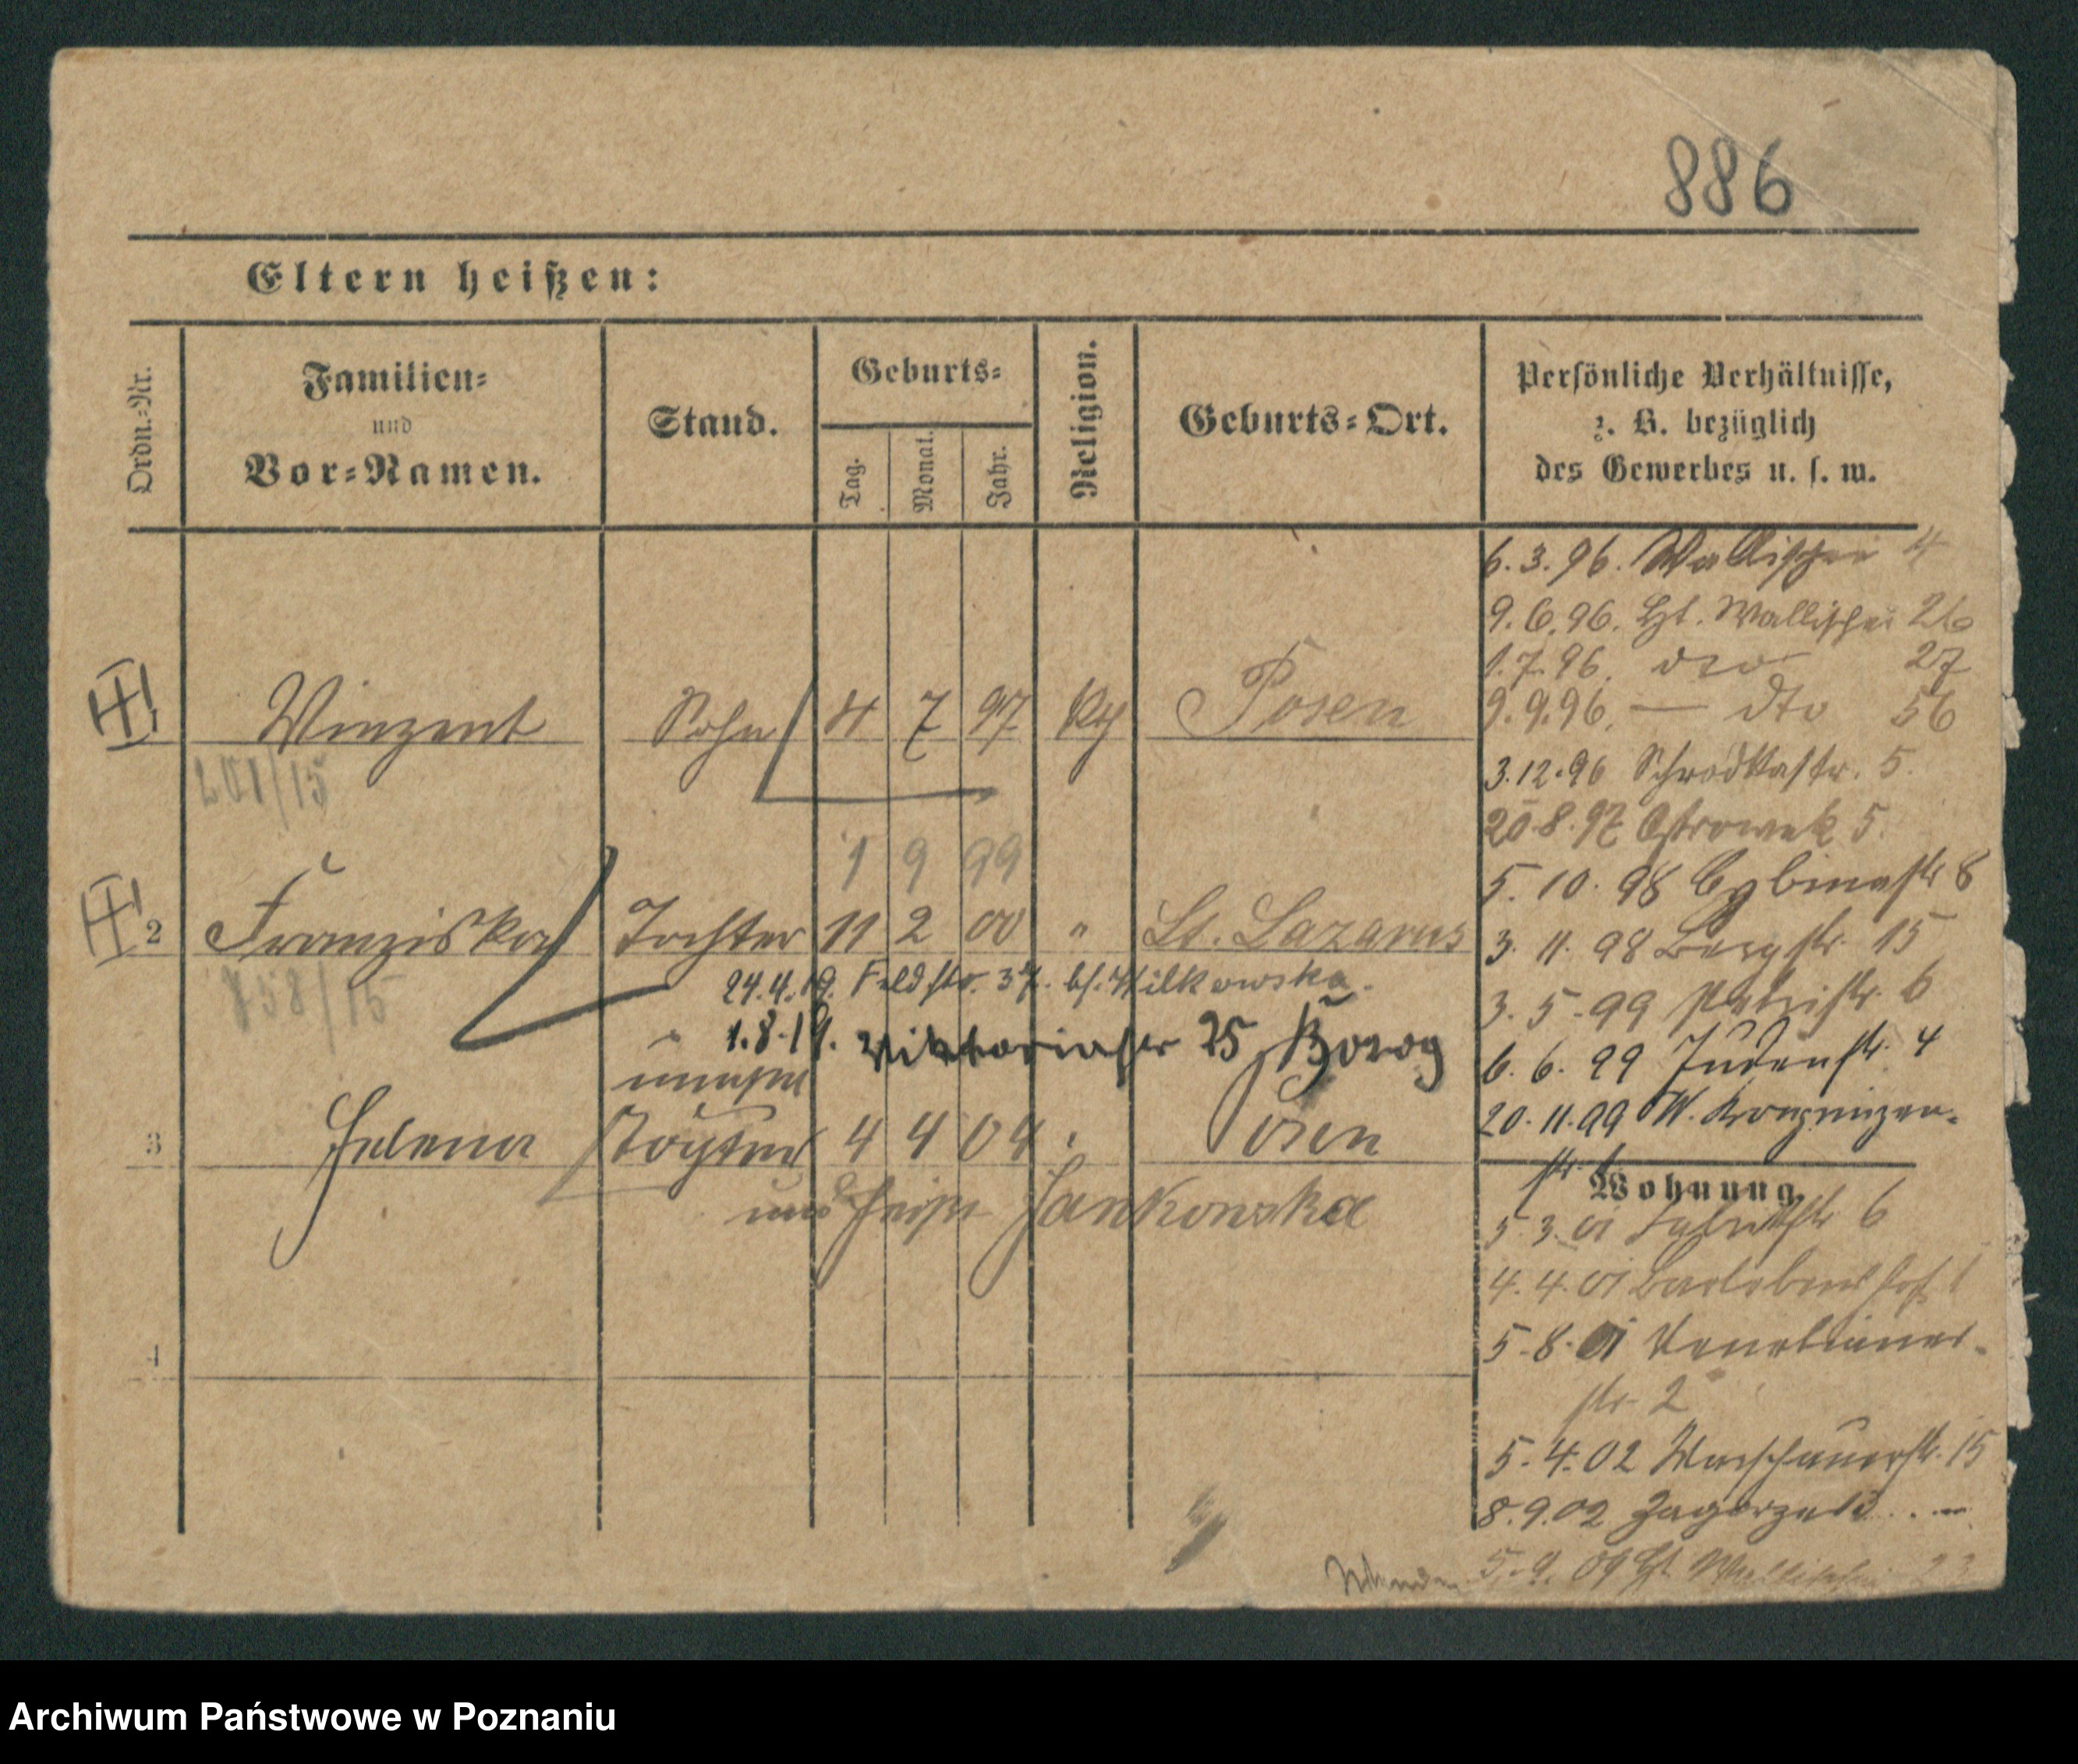 886
Eltern heißen:
Ordn.=Nr.
Familien=
und
Vor=Namen.
Stand.
Geburts=
Tag.
Monat.
Jahr.
Religion.
Geburts=Ort.
Persönliche Verhältnisse,
z. B. bezüglich
des Gewerbes u. s. w.
6.3.96. Wallischei 4
9.6.96. Wallischei 26
1.7.96. dto 27
9.9.96. — dto 56
3.12.96 Schrodkastr. 5.
20.8.97 Ostrowek 5.
5.10.98 Cybinastr 8
3.11.98 Bergstr. 15
3.5.99 6
6.6.99 Judenstr. 4
20.11.99 W.
str. 1
1 Winzent Sohn 4 7 97 Posen
201/15
1 9 99
2 Franziska Tochter 11 2 00 " St. Lazarus
858/15
24.4.19. Feldstr. 37. Wilkowska.
1.8.19. Viktoriastr 25
3 Helena Tochter 4 4 04 Posen
und heißt Jankowska
4
Wohnung
5.3.01 6
4.4.01 1
5.8.01 Venetianer-
str. 2
5.4.02 Warschauerstr. 15
8.9.02 Zagorze
Wallischei
Archiwum Państwowe w Poznaniu